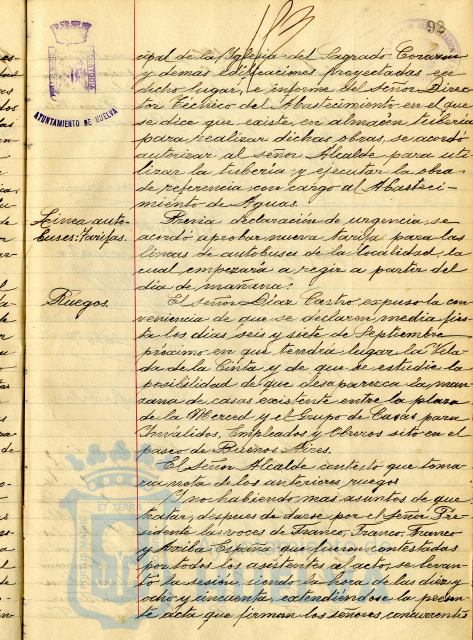 93
AYUNTAMIENTO DE HUELVA
cipal de la Iglesia del Sagrado Corazon
y demas edificaciones proyectadas en
dicho lugar, e informe del Señor Direc
tor Técnico del Abastecimiento en el que
se dice que existe en almacén tuberia
para realizar dichas obras, se acordó
autorizar al señor Alcalde para uti
lizar la tuberia y ejecutar la obra
de referencia con cargo al Abasteci-
miento de Aguas.
Linea auto-
buses: Tarifas.
Previa declaración de urgencia, se
acordó aprobar nueva tarifa para las
lineas de autobuses de la localidad, la
cual empezará a regir a partir del
dia de mañana.
Ruegos.
El señor Diaz Castro, expuso la con
veniencia de que se declaren media fies
ta los dias seis y siete de Septiembre
próximo en que tendrá lugar la Vela
da de la Cinta y de que se estudie la
posibilidad de que desaparezca la man
zana de casas existente entre la plaza
de la Merced y el Grupo de Casas para
Inválidos, Empleados y Obreros sito en el
paseo de Buenos Aires.
El Señor Alcalde contestó que toma
ria nota de los anteriores ruegos
Y no habiendo mas asuntos de que
tratar, despues de darse por el Señor Pre
sidente las voces de Franco, Franco, Franco
y Arriba España que fueron contestadas
por todos los asistentes al acto, se levan
tó la sesión, siendo la hora de las diez y
ocho y cincuenta, extendiéndose la presen
te acta que firman los señores concurrentes